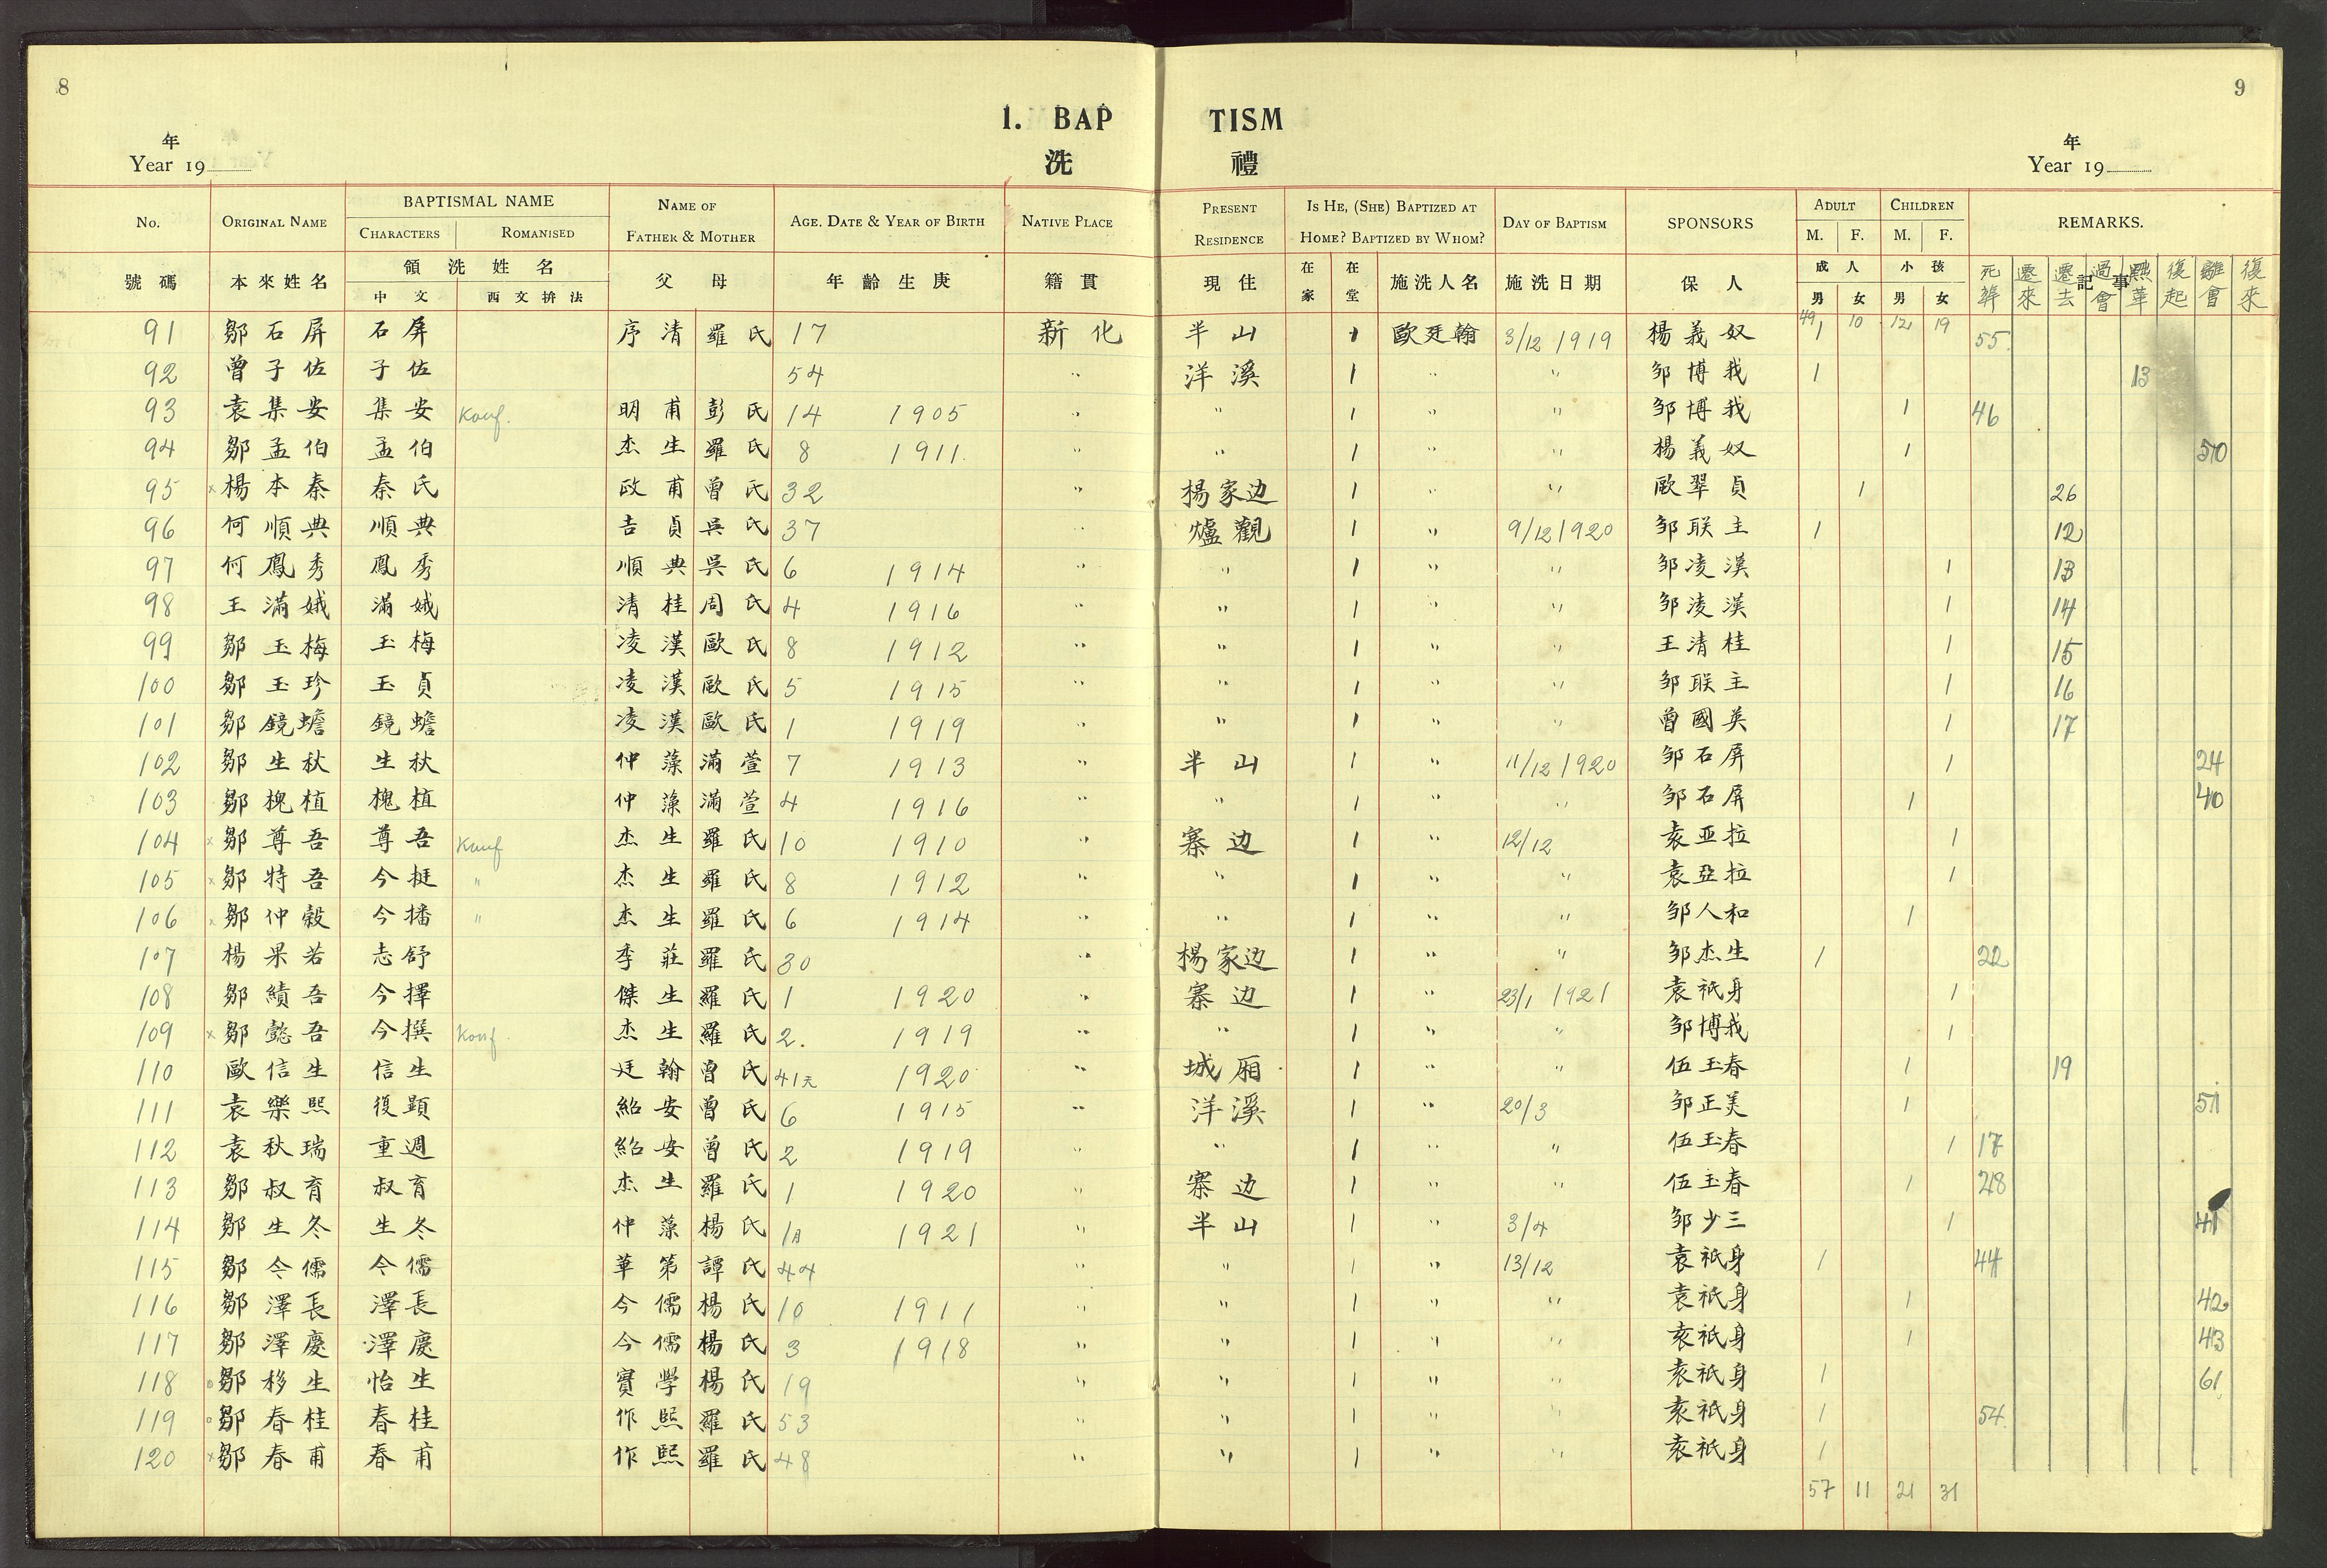 8
9
1. BAP TISM
年 洗 禮 年
Year 19 Year 19
No. ORIGINAL NAME BAPTISMAL NAME CHARACTERS ROMANISED NAME OF FATHER & MOTHER AGE. DATE & YEAR OF BIRTH NATIVE PLACE PRESENT RESIDENCE IS HE, (SHE) BAPTIZED AT HOME? BAPTIZED BY WHOM? DAY OF BAPTISM SPONSORS ADULT M. F. CHILDREN M. F. REMARKS.
號碼 本來姓名 領洗姓名 中文 西文拚法 父母 年齡生庚 籍貫 現住 在家 在堂 施洗人名 施洗日期 保人 成人 男 女 小孩 男 女 記事 遷來 遷去 過會 復起 離會 復來
49 10 12 19
91 鄒石屏 石屏 序清 羅氏 17 新化 半山 1 歐廷翰 3/12 1919 楊義奴 1 55
92 曾子佐 子佐 54 " 洋溪 1 " " 邹博我 1 13
93 袁集安 集安 Konf. 明甫 彭氏 14 1905 " " 1 " " 邹博我 1 46
94 鄒孟伯 孟伯 杰生 羅氏 8 1911 " " 1 " " 楊義奴 1 50
95 x 楊本秦 秦氏 政甫 曾氏 32 " 楊家边 1 " " 歐翠貞 1 26
96 何順典 順典 吉貞 吳氏 37 " 爐觀 1 " 9/12 1920 邹联主 1 12
97 何鳳秀 鳳秀 順典 吳氏 6 1914 " " 1 " " 邹凌漢 1 13
98 王滿娥 滿娥 清桂 周氏 4 1916 " " 1 " " 邹凌漢 1 14
99 鄒玉梅 玉梅 凌漢 歐氏 8 1912 " " 1 " " 王清桂 1 15
100 鄒玉珍 玉貞 凌漢 歐氏 5 1915 " " 1 " " 邹联主 1 16
101 鄒鏡蟾 鏡蟾 凌漢 歐氏 1 1919 " " 1 " " 曾國英 1 17
102 鄒生秋 生秋 仲藻 滿萱 7 1913 " 半山 1 " 11/12 1920 邹石屏 1 24
103 鄒槐植 槐植 仲藻 滿萱 4 1916 " " 1 " " 邹石屏 1 40
104 x 鄒尊吾 尊吾 Konf 杰生 羅氏 10 1910 " 寨边 1 " 12/12 袁亚拉 1
105 x 鄒特吾 今挺 " 杰生 羅氏 8 1912 " " 1 " " 袁亞拉 1
106 x 鄒仲穀 今播 " 杰生 羅氏 6 1914 " " 1 " " 邹人和 1
107 楊果若 志舒 季莊 羅氏 30 " 楊家边 1 " " 邹杰生 1 22
108 鄒績吾 今擇 傑生 羅氏 1 1920 " 寨边 1 " 23/1 1921 袁祇身 1
109 x 鄒懿吾 今撰 Konf. 杰生 羅氏 2. 1919 " " 1 " " 邹博我 1
110 歐信生 信生 廷翰 曾氏 41天 1920 " 城厢 1 " " 伍玉春 1 19
111 袁樂熙 復顕 紹安 曾氏 6 1915 " 洋溪 1 " 20/3 邹正美 1 51
112 袁秋瑞 重週 紹安 曾氏 2 1919 " " 1 " " 伍玉春 1 17
113 鄒叔育 叔育 杰生 羅氏 1 1920 " 寨边 1 " " 伍玉春 1 28
114 鄒生冬 生冬 仲藻 楊氏 1月 1921 " 半山 1 " 3/4 邹少三 1 41
115 鄒今儒 今儒 華第 譚氏 44 " " 1 " 13/12 袁祇身 1 44
116 鄒澤長 澤長 今儒 楊氏 10 1911 " " 1 " " 袁祇身 1 42
117 鄒澤慶 澤慶 今儒 楊氏 3 1918 " " 1 " " 袁祇身 1 43
118 o 鄒移生 怡生 實學 楊氏 19 " " 1 " " 袁祇身 1 61
119 o 鄒春桂 春桂 作熙 羅氏 53 " " 1 " " 袁祇身 1 54
120 x 鄒春甫 春甫 作熙 羅氏 48 " " 1 " " 袁祇身 1
57 11 21 31